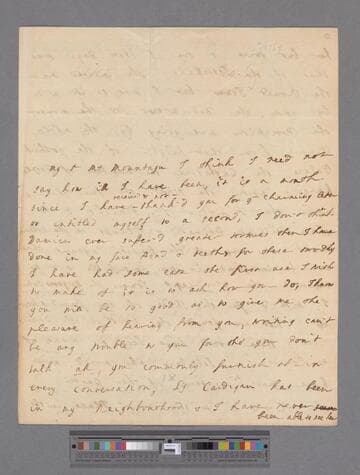 my Dr Mrs Mountagu I think I need not
say how ill I have been, it is a month
since I have receiv'd & not thank'd you for yr charming letter
or intitled myself to a second, I don't think
Damien ever suffer'd greater tortures then I have
done in my face Head & teeth for these
I have had some ease the first use I wish
to make of it is to ask how you Do, I hope
you will be so good as to give me the
pleasure of hearing from you, writing can't
be any trouble to you for tho' you don't
talk all, you commonly furnish all in
every conversation, Ly Cardigan has been
in my Neighbourhood & I have never
been able to see her